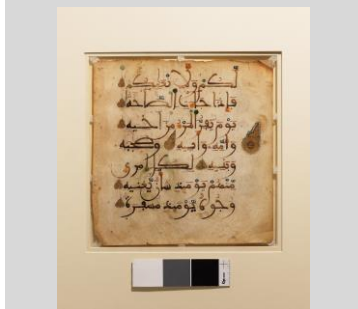 لكم ولأنعمكم
فإذا جاءت الصاخة
يوم يفر المرء من أخيه
وأمه وأبيه وصحبته
وبنيه لكل امرئ
منهم يومئذ شأن يغنيه
وجوه يومئذ مسفرة